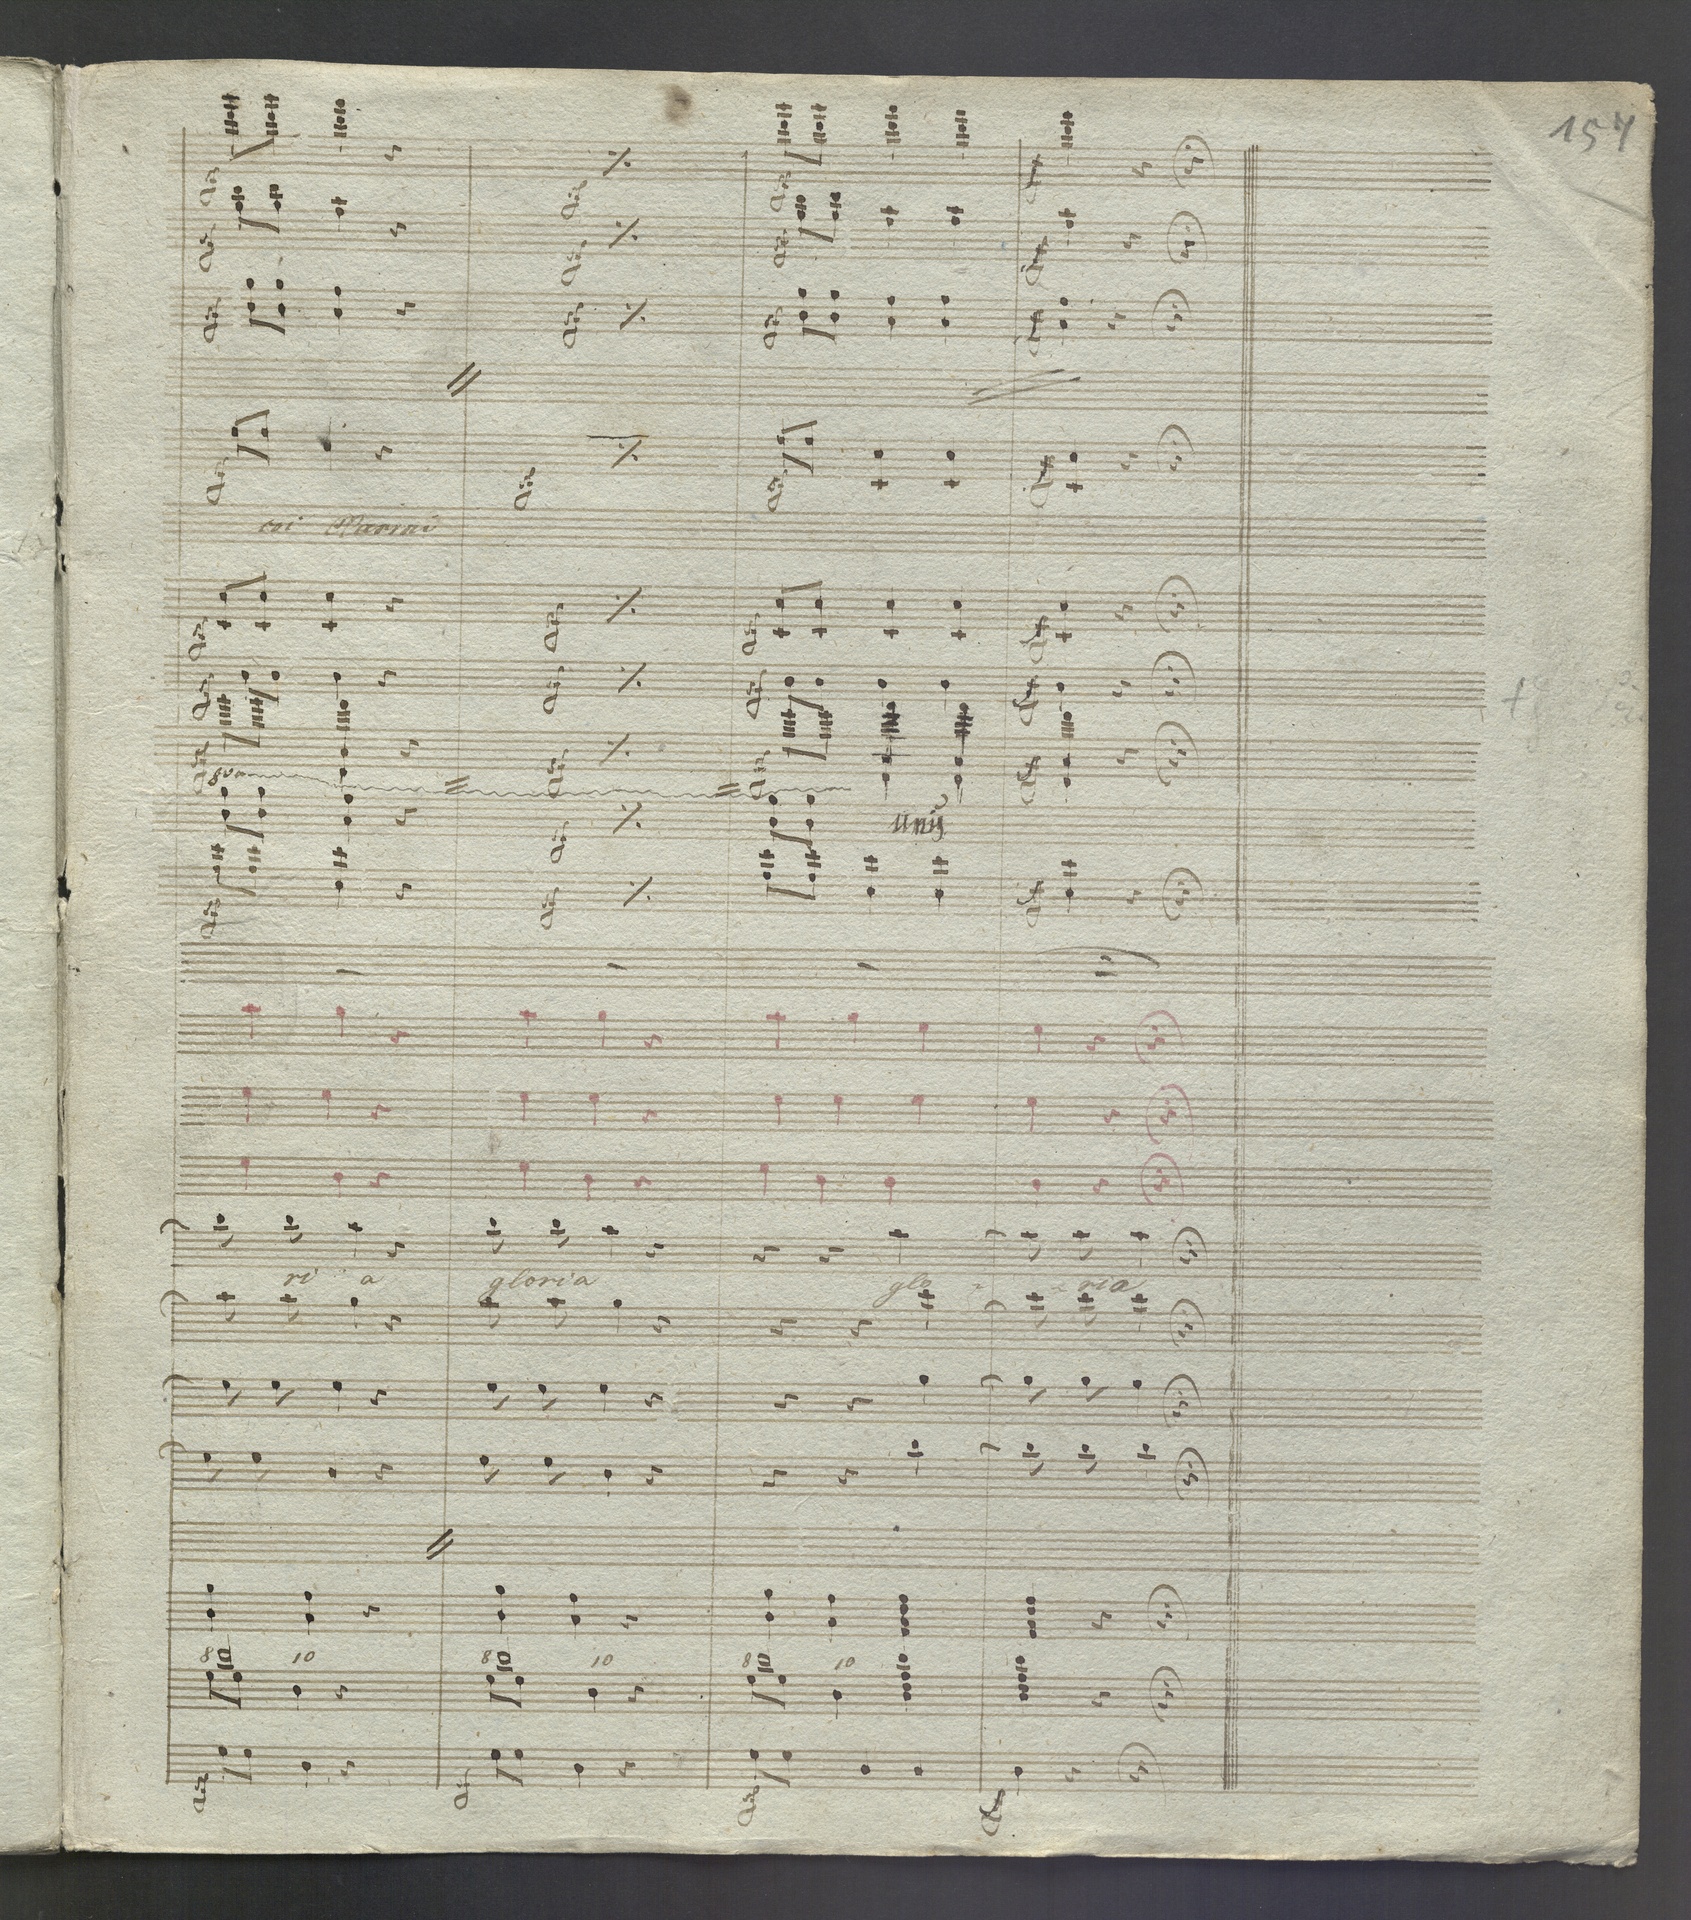 157
8va
unis
ri a gloria glo - ria
8 10 8 10 8 10